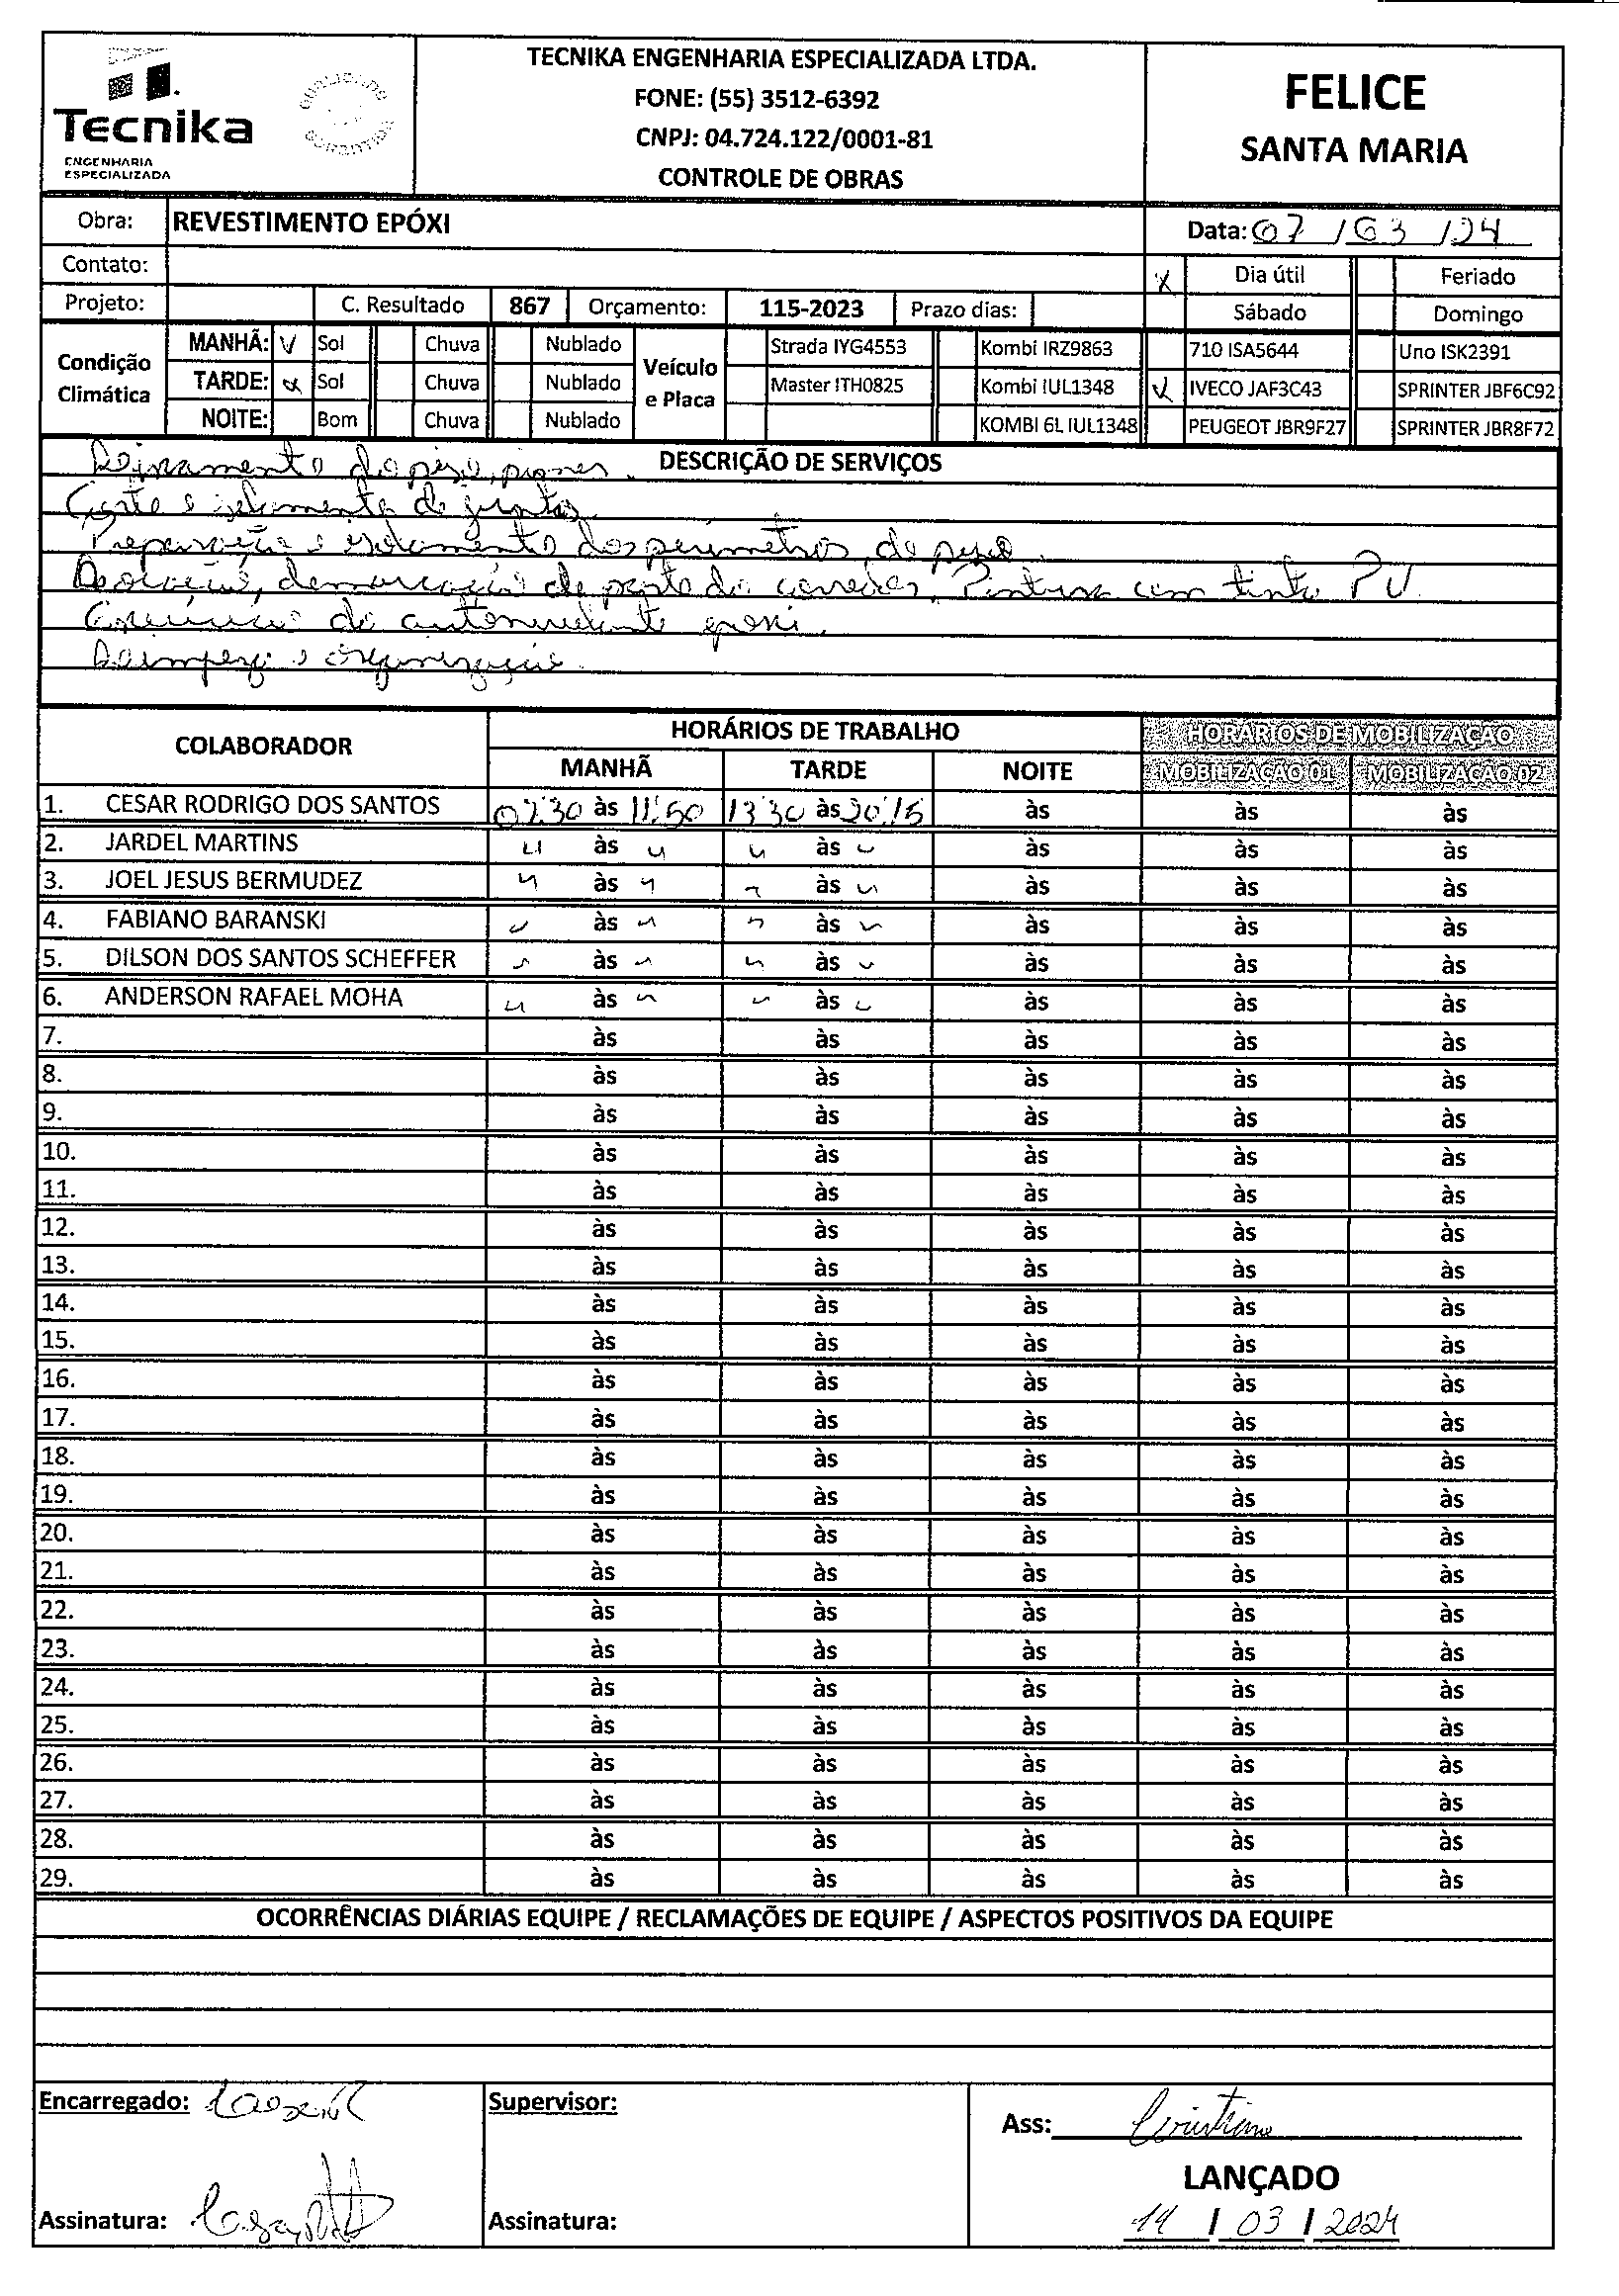 Tecnika
ENGENHARIA
ESPECIALIZADA
TECNIKA ENGENHARIA ESPECIALIZADA LTDA.
FONE: (55) 3512-6392
CNPJ: 04.724.122/0001-81
CONTROLE DE OBRAS
FELICE
SANTA MARIA
Obra: REVESTIMENTO EPÓXI
Data: 07 / 03 / 24
Contato:
X Dia útil Feriado
Projeto: C. Resultado 867 Orçamento: 115-2023 Prazo dias:
Sábado Domingo
Condição Climática
MANHÃ: V Sol Chuva Nublado
TARDE: X Sol Chuva Nublado
NOITE: Bom Chuva Nublado
Veículo e Placa
Strada IYG4553 Kombi IRZ9863 710 ISA5644 Uno ISK2391
Master ITH0825 Kombi IUL1348 V IVECO JAF3C43 SPRINTER JBF6C92
KOMBI 6L IUL1348 PEUGEOT JBR9F27 SPRINTER JBR8F72
DESCRIÇÃO DE SERVIÇOS
do piso,
Corte e de juntas
Preparação e isolamento dos perimetros do piso.
demarcação de parte do corredor. Pintura com tinta PU
de autonivelante epoxi.
e organização.
COLABORADOR HORÁRIOS DE TRABALHO HORÁRIOS DE MOBILIZAÇÃO
MANHÃ TARDE NOITE MOBILIZAÇÃO 01 MOBILIZAÇÃO 02
1. CESAR RODRIGO DOS SANTOS 07:30 às 11:50 13:30 às 20:15 às às às
2. JARDEL MARTINS " às " " às " às às às
3. JOEL JESUS BERMUDEZ " às " " às " às às às
4. FABIANO BARANSKI " às " " às " às às às
5. DILSON DOS SANTOS SCHEFFER " às " " às " às às às
6. ANDERSON RAFAEL MOHA " às " " às " às às às
7. às às às às às
8. às às às às às
9. às às às às às
10. às às às às às
11. às às às às às
12. às às às às às
13. às às às às às
14. às às às às às
15. às às às às às
16. às às às às às
17. às às às às às
18. às às às às às
19. às às às às às
20. às às às às às
21. às às às às às
22. às às às às às
23. às às às às às
24. às às às às às
25. às às às às às
26. às às às às às
27. às às às às às
28. às às às às às
29. às às às às às
OCORRÊNCIAS DIÁRIAS EQUIPE / RECLAMAÇÕES DE EQUIPE / ASPECTOS POSITIVOS DA EQUIPE
Encarregado:
Supervisor:
Ass: Cristiane
LANÇADO
Assinatura:
Assinatura:
14 / 03 / 2024